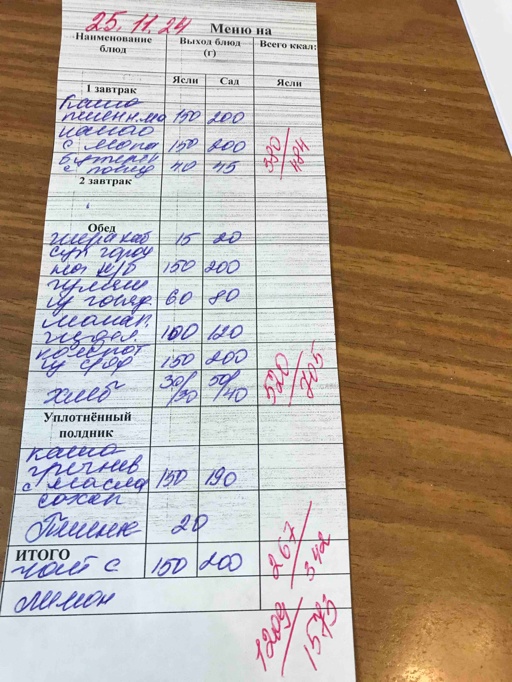 25.11.24 Меню на
Наименование блюд Выход блюд (г) Всего ккал:
Ясли Сад Ясли
1 завтрак
Каша
пшенн.мо 150 200
какао
с мол 150 200
бутерб 40 45
с повид
390/484
2 завтрак
Обед
икра каб 15 20
суп горох
150 200
гуляш
из говяд. 60 80
макар.
издел. 100 120
компот
из с/фр 150 200
хлеб 30/30 50/40
520/705
Уплотнённый
полдник
каша
гречнев
с масло 150 190
сахар
20
267/342
ИТОГО
чай с 150 200
лимон
1209/1573